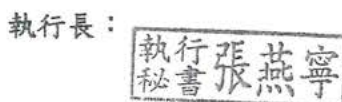 執行長：
執行秘書 張燕寧